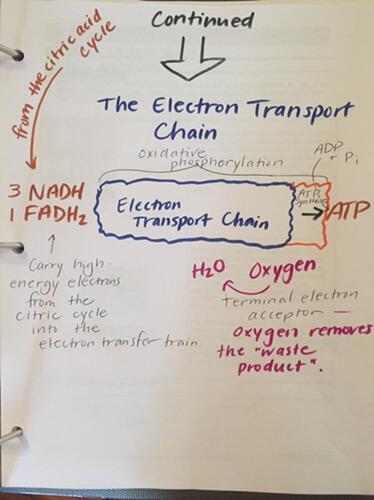 Continued
from the citric acid
cycle
The Electron Transport
Chain
Oxidative
phosphorylation
ADP
+ Pi
3 NADH
1 FADH₂
Electron
Transport Chain
ATP
Synthase
→ ATP
Carry high-
energy electrons
from the
citric cycle
into the
electron transfer train
H₂O Oxygen
Terminal electron
acceptor —
oxygen removes
the "waste
product".